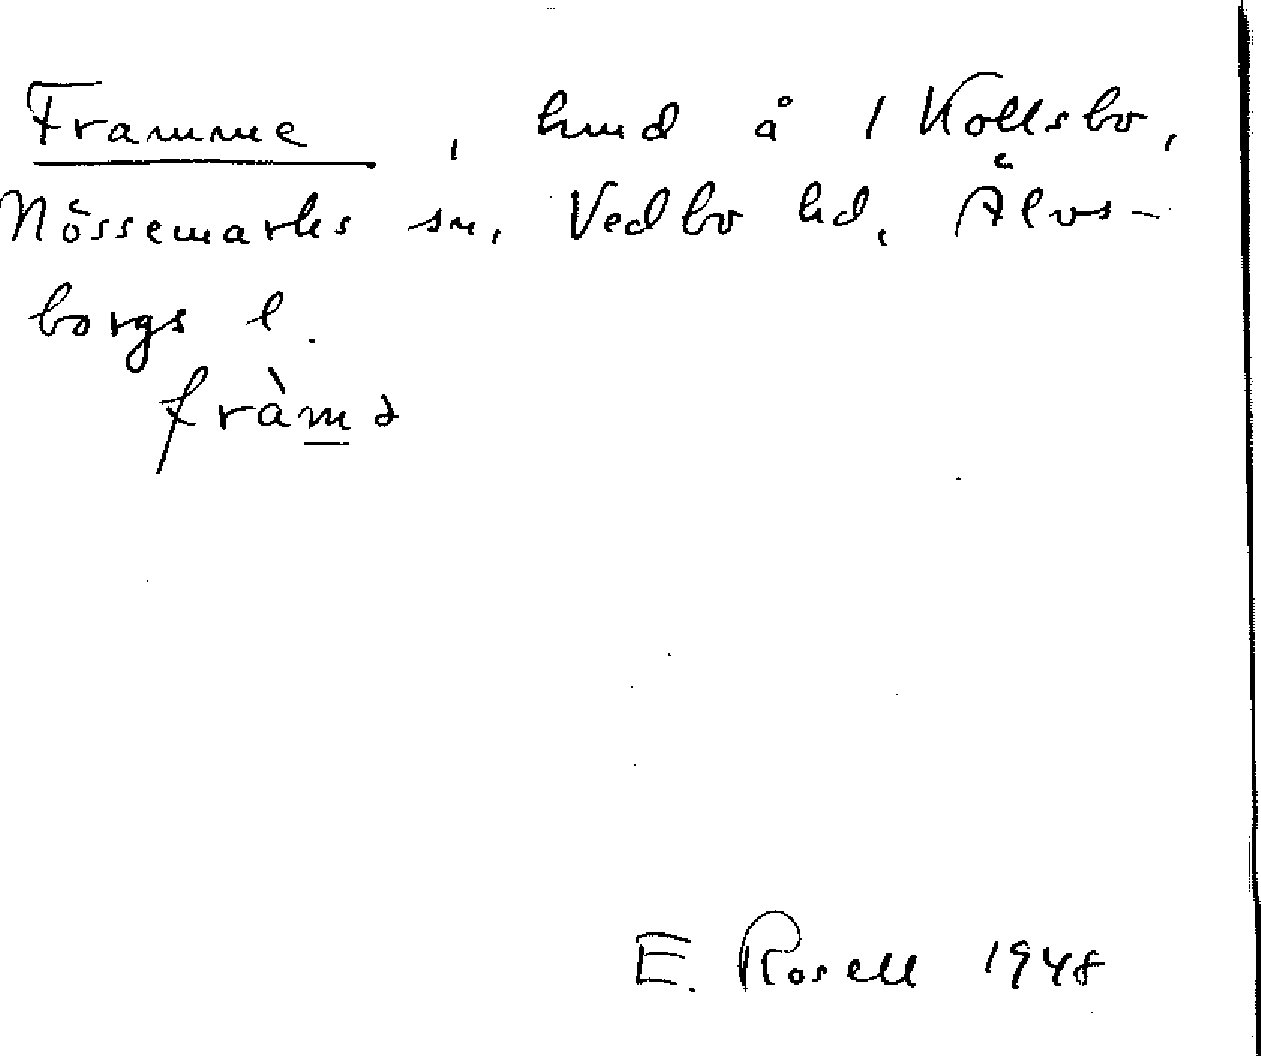 Framme, hund å 1 Kollsbo,
Nössemarks sn, Vedbo hd, Älvs-
borgs l.
fràmə
E. Rosell 1948